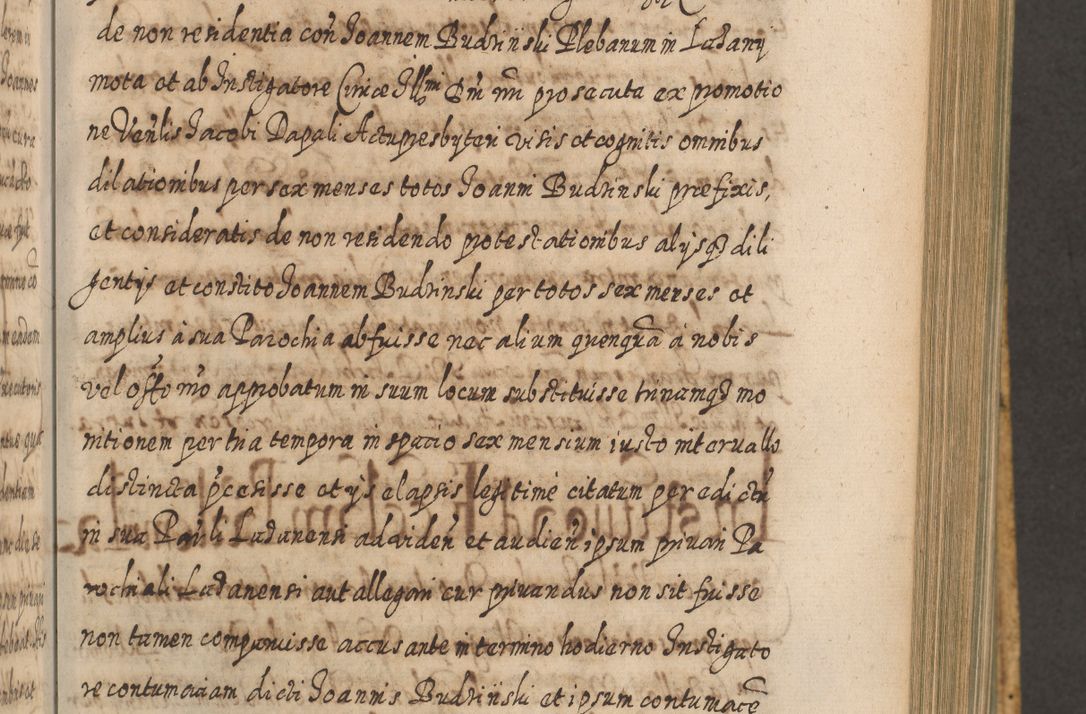 de non residentia coñ Joannem Budziński Plebanum in Ladany
mota et ab Instigatore Curiæ Illmi Dm̃i nr̃i prosecuta ex promotio
ne Veñlis Jacobi Dapali Actupresbyteri visis et cognitis omnibus
dilationibus per sex menses totos Joanni Budzinski præfixis,
et consideratis de non residendo protestationibus alysq3 dili
gentijs et constito Joannem Budzinski per totos sex menses et
amplius à sua Parochia abfuisse nec alium quenquã à nobis
vel offo nr̃o approbatum in suum locum substituisse trinamq3 mo
nitionem per tria tempora in spacio sex mensium iusto intervallo
distincta p̃cesisse et ijs elapsis legitimè citatum per edictũ
in sua Par̃li Ladanensi ad viden̄ et audien̄ ipsum privari Pa
rochiali Ladanensi aut allegari cur privandus non sit fuisse
non tamen comparuisse accusante in termino hodierno Instigato
re contumaciam dicti Joannis Budziński et ipsum contumacẽ